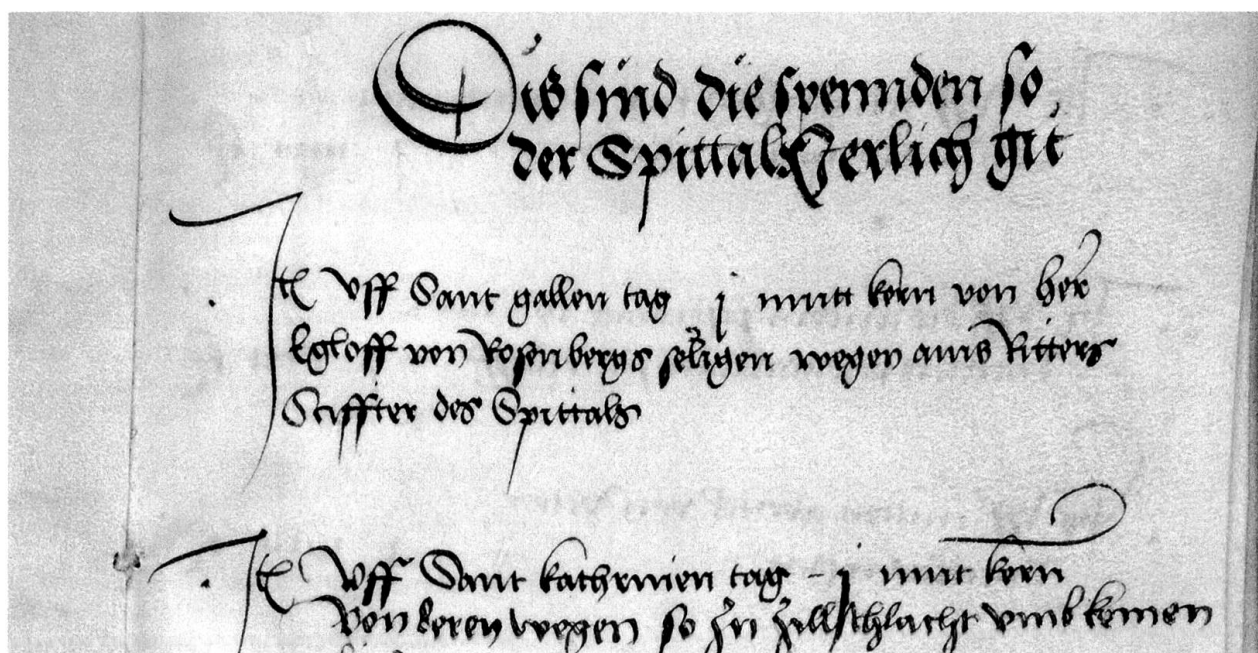 Dis sind die spennden so
der Spittal Jerlich git
Jt Uff Sant gallen tag j mutt kern von her
Egloff von Rosenbergs seligen wegen ains Ritters
Stiffter des Spittals
Jt Uff Sant kathrinen tag - j mutt kern
Von deren wegen so zu zillschlacht umbkomen